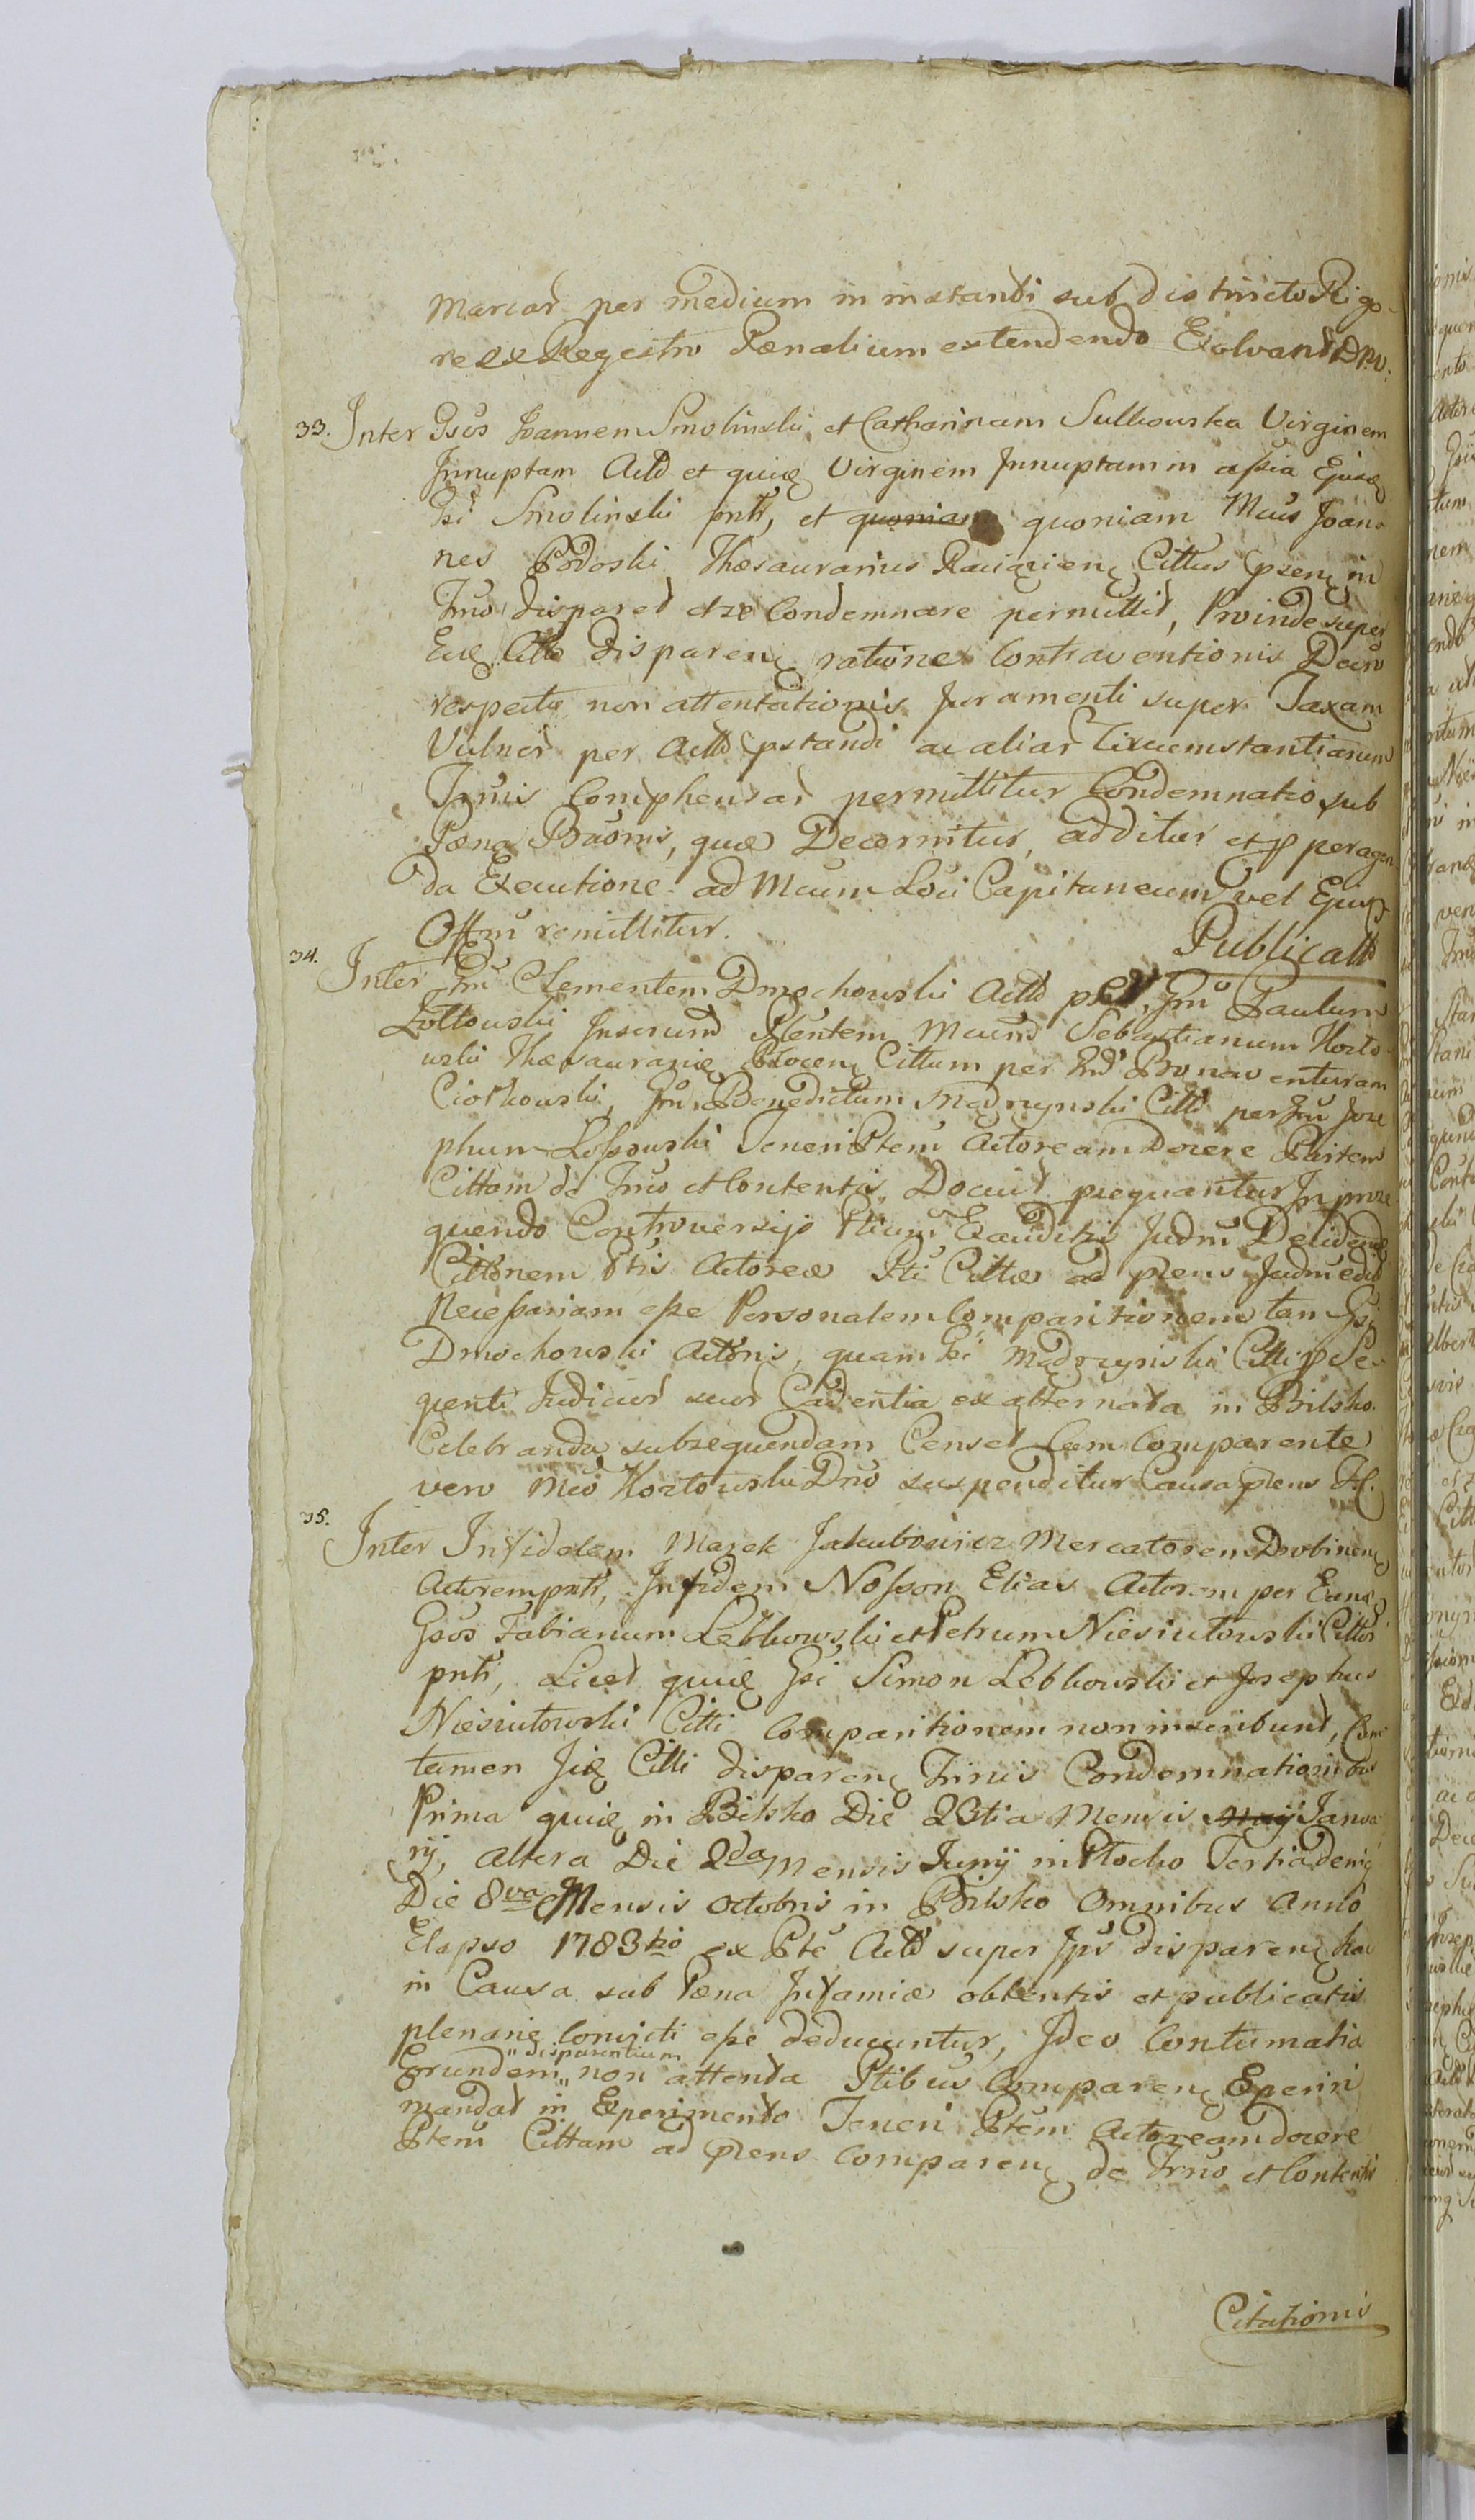 Marcar per medium in instanti sub distincto Rigo-
re ex Regestro Pænalium extendendo Exolvant Dno.
33. Inter Gsos Joannem Smolinski et Catharinam Sulkowska Virginem
Innuptam Actt et quidę Virginem Innuptam in assia Ejusdę
Gsi Smolinski pntt, et quoniam quoniam Mcus Joan-
nes Podoski Thesaurarius Raciążienę Cittus psenę in
Trno disparet et se Condemnare permittit, Proinde super
Eoę Citto disparenę ratione Contraventionis Decro
respectu non attentationis Juramenti super Taxam
Vulner per Actt pstandi ac aliar Circumstantiarum
Trnis Comphensar permittitur Condemnatio sub
Pæna Baonis, quæ Decernitur, additur et p peragen
da Executione ad Mcum Loci Capitaneum vel Ejus
Offm remittitur.
Publicatt
34. Inter Gsm Clementem Dmochowski Actt Gsm Paulum
Zołtowski Inserund Ptentem Mcum Sebastianum Kozło-
wski Thesaurarię Płocenę Cittum per Gsm Bonaventuram
Ciotkowski, Gsm Benedictum Mądrzynski Citt per Gsm Jose
phum Lossowski Teneri Ptem Actoream Docere Partem
Cittam de Trno et Contentis Docuit prequantur In prose
quendo Controversijs Ptium Exauditis Judm Decidendę
Cittonem Ptis Actoreæ Pti Cittæ ad plens Judm edit
Necessariam esse Personalem Comparitionem tam Gsi
Dmochowski Actoris, quam Gsi Mądrzynski Citti p Se-
quenti Judicior suor Cadentia ex alternata in Bilsko
Celebranda subsequendam Censet Cum Comparente
vero Mco Kozłowski Dno suspenditur Causa plens
35. Inter Infidelem Marek Jakubowicz Mercatorem Drobinenę
Actorem pntt, Infidem Nosson Elias Actorem per Eundę
Gsos Fabianum Lebkowski et Petrum Niesiułowski Cittos
pntt, Licet quidę Gsi Simon Lebkowski et Josephus
Niesiułowski Citti Comparitionem non inscribunt, Cum
tamen Iidę Citti disparenę Trinis Condemnationibus
Prima quidę in Bilsko Die 23tia Mensis Maij Janua
rij, altera Die 2da Mensis Junij in Płocko Tertia denię
Die 8va Mensis Octobris in Bilsko Omnibus Anno
Elapso 1783tio ex Pte Actt super Ips disparenę hac
in Causa sub Pæna Infamiæ obtentis et publicatis
plenarie Convicti esse deducuntur, Ideo Contumatia
Eorundem „disparentium„ non attenta Ptibus Comparenę Experiri
mandat in Experimento Teneri Ptem Actoream docere
Ptem Cittam ad plens Comparenę de Trno et Contentis
Citationis